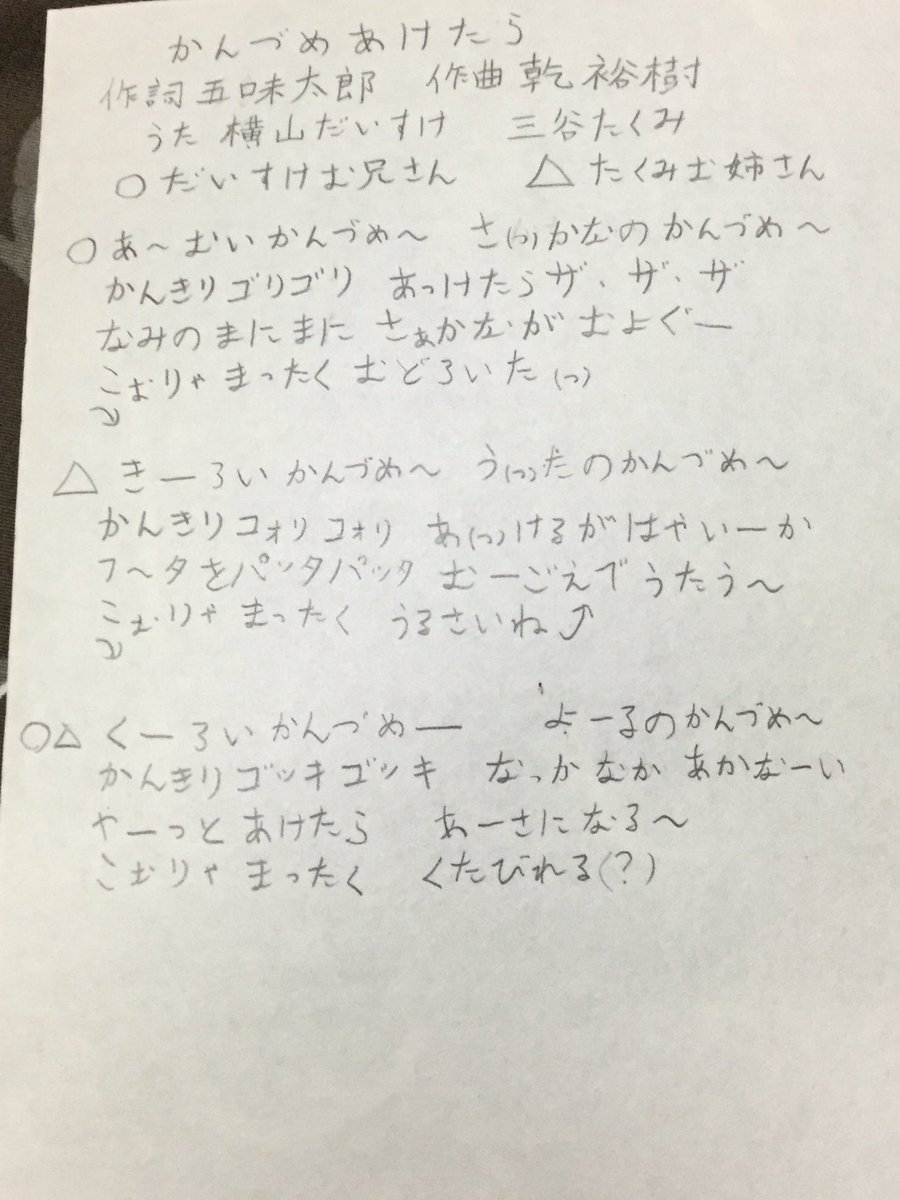 かんづめあけたら
作詞 五味太郎　作曲 乾 裕樹
うた 横山だいすけ　三谷たくみ
○だいすけお兄さん　△たくみお姉さん
○あ～おいかんづめ～　さ(っ)かなのかんづめ～
かんきりゴリゴリ　あっけたらザ、ザ、ザ
なみのまにまに さぁかながおよぐー
こおりゃまったくおどろいた(っ)
△きーろいかんづめ～　う(っ)たのかんづめ～
かんきりコォリコォリ　あ(っ)けるがはやいーか
フ～タをパッタパッタ おーごえでうたう～
こおりゃまったく うるさいね⤴
○△くーろいかんづめー　よーるのかんづめ～
かんきりゴッキゴッキ　なっかなかあかなーい
やーっとあけたら　あーさになる～
こおりゃまったく くたびれる(?)